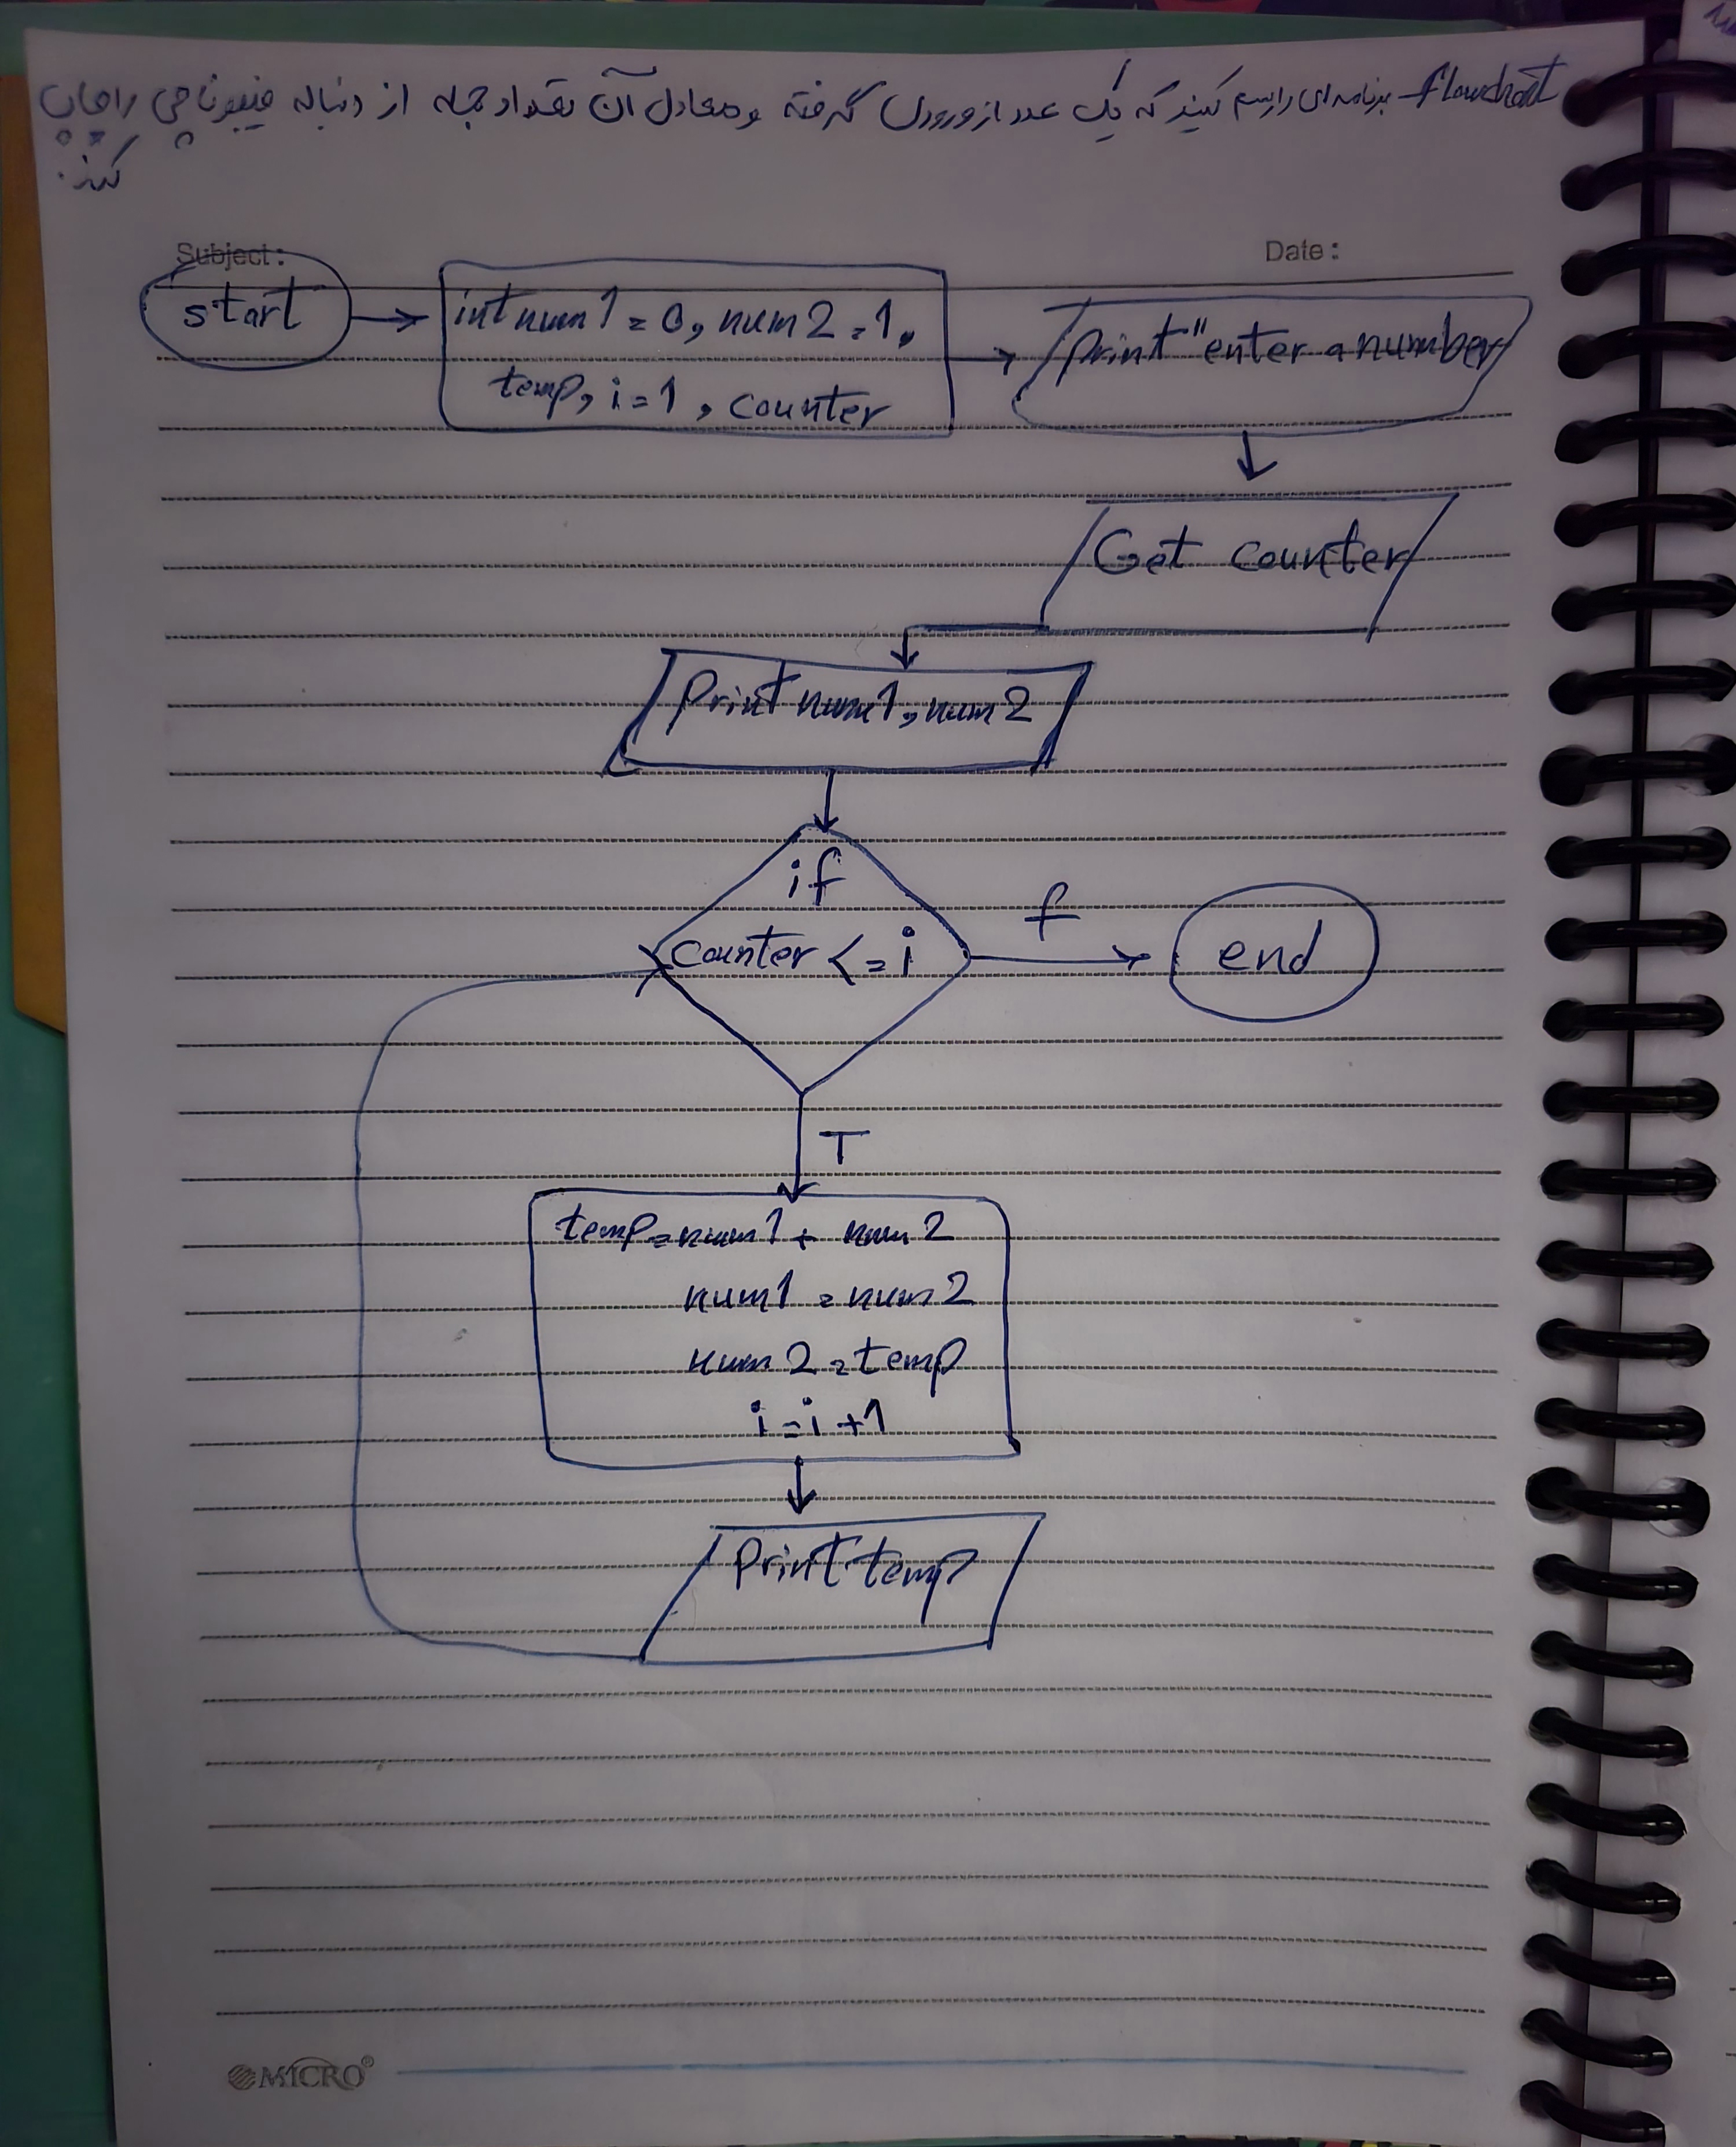 flowchart برنامه ای را رسم کنید که یک عدد از ورودی گرفته و معادل آن تعداد جمله از دنباله فیبوناچی را چاپ
کند.
Subject:
Date:
start
int num1 = 0, num2 = 1,
temp, i = 1, counter
print "enter a number
Get counter
Print num1, num2
if
counter <= i
f
end
T
temp = num1 + num2
num1 = num2
num2 = temp
i = i + 1
Print temp
MICRO®